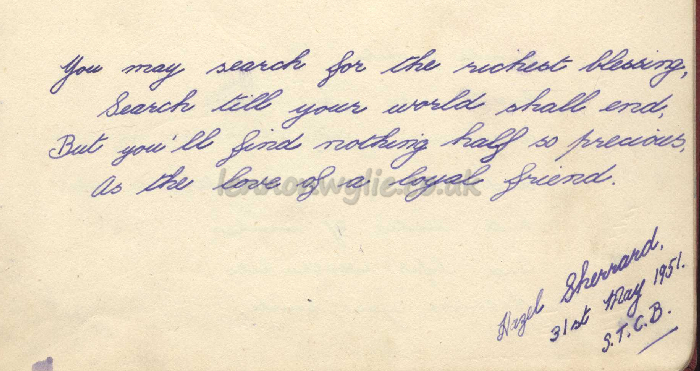 You may search for the richest blessing,
Search till your world shall end,
But you'll find nothing half so precious,
As the love of a loyal friend.
lennonwylie.co.uk
Hazel Sherrard,
31st May 1951.
S.T.C.B.